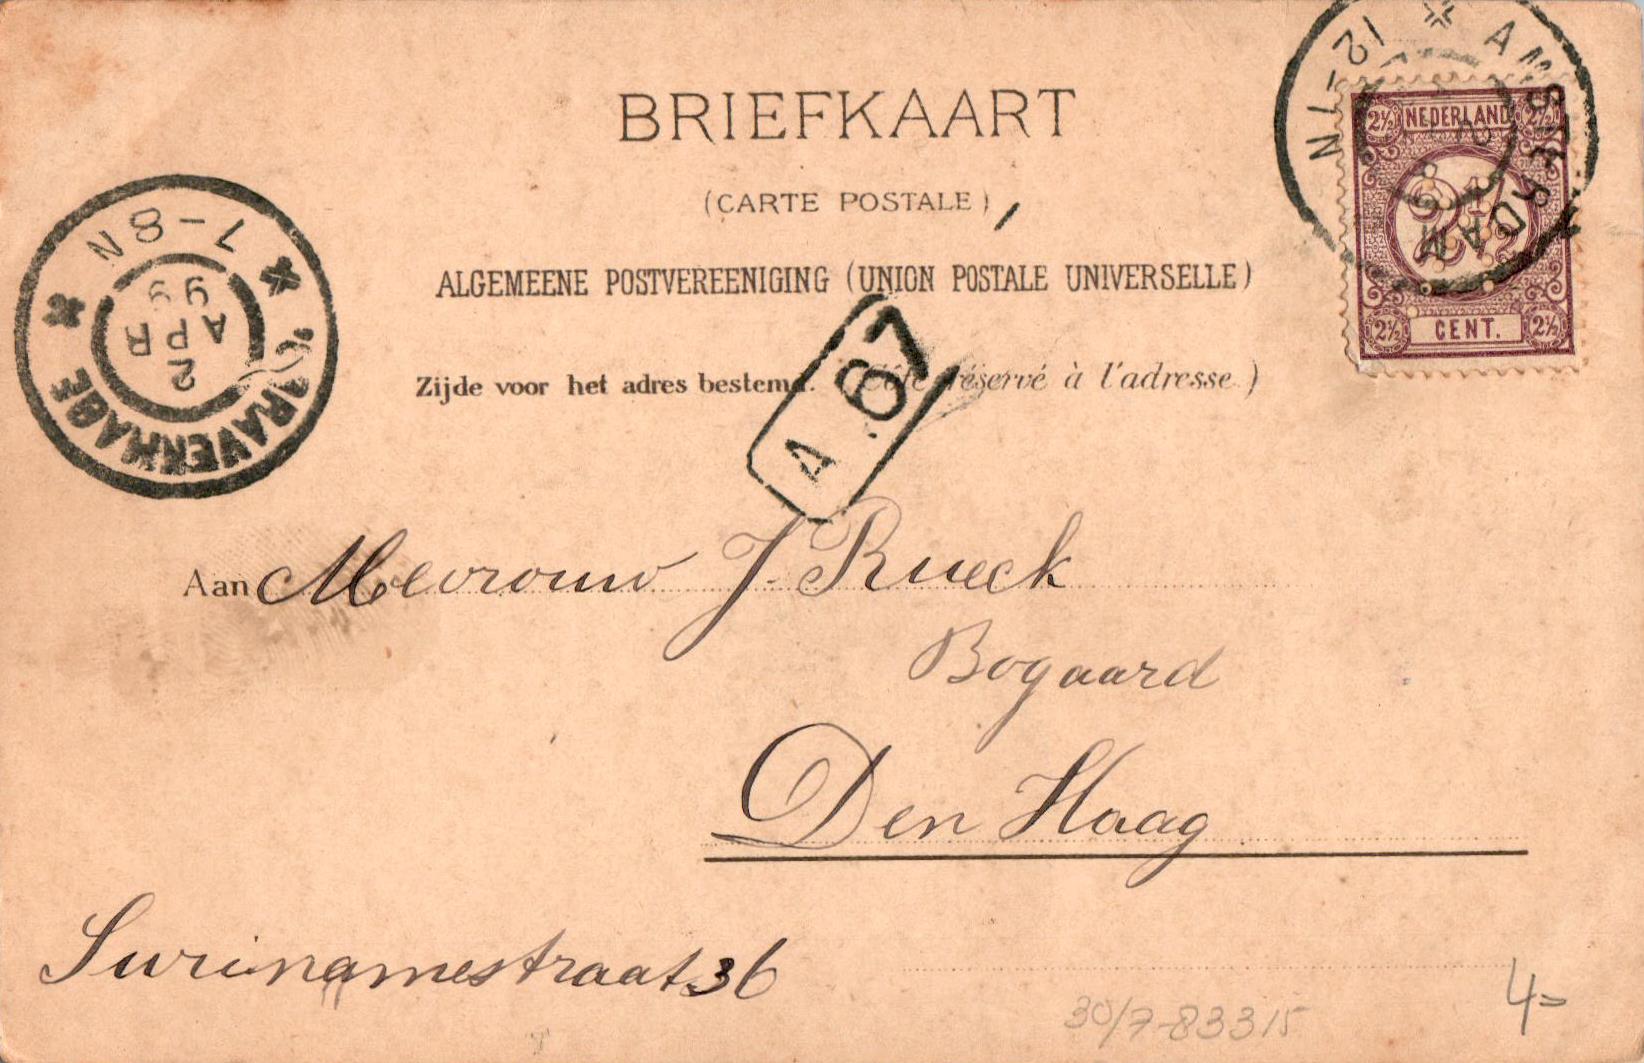 BRIEFKAART
(CARTE POSTALE)
ALGEMEENE POSTVEREENIGING (UNION POSTALE UNIVERSELLE)
Zijde voor het adres bestemd. (Côté réservé à l'adresse)
AMSTERDAM
12-1N
NEDERLAND
2½ 2½
2½
2½ CENT. 2½
'S GRAVENHAGE
7-8N
2 APR 99
A 67
Aan Mevrouw J. Rueck
Bogaard
Den Haag
Surinamestraat 36
30/7-83315
4=